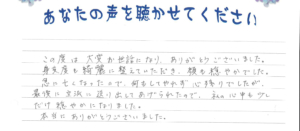 あなたの声を聴かせてください
この度は、大変お世話になり、ありがとうございました。
身支度も綺麗に整えていただき、顔も穏やかでした。
急に亡くなったので、何もしてやれず心残りでしたが、
最後に立派に送り出してあげられたので、私の心中も少し
だけ穏やかになりました。
本当にありがとうございました。